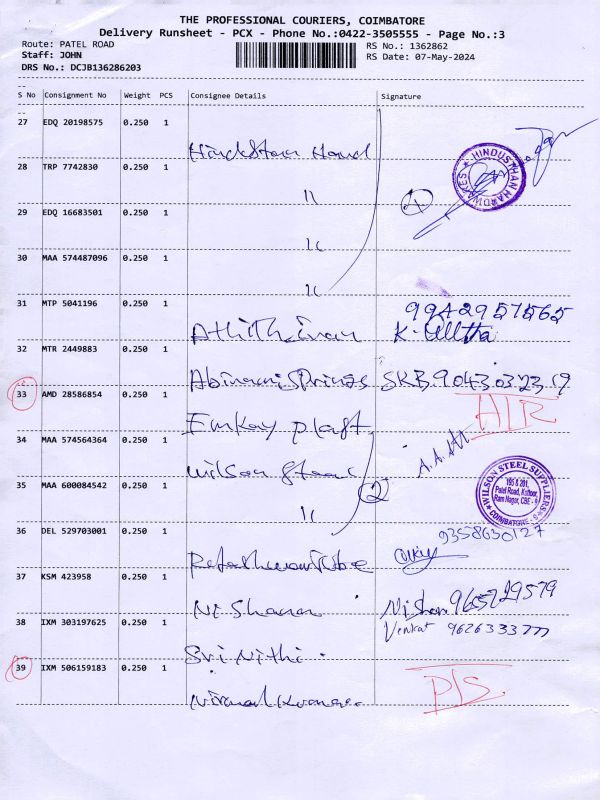 THE PROFESSIONAL COURIERS, COIMBATORE
Delivery Runsheet - PCX - Phone No.:0422-3505555 - Page No.:3
Route: PATEL ROAD RS No.: 1362862
Staff: JOHN RS Date: 07-May-2024
DRS No.: DCJB136286203
S No Consignment No Weight PCS Consignee Details Signature
27 EDQ 20198575 0.250 1
28 TRP 7742830 0.250 1
HINDUSTHAN HARDWARES
11
4
29 EDQ 16683501 0.250 1
30 MAA 574487096 0.250 1
31 MTP 5041196 0.250 1
9942957565
32 MTR 2449883 0.250 1
Abinami Springs SKB 9043032319
33 AMD 28586854 0.250 1
Emkay plast
34 MAA 574564364 0.250 1
Wilson Steel
35 MAA 600084542 0.250 1
2
WILSON STEEL SUPPLIERS
195 & 201,
Patel Road, Kattoor,
Ram Nagar, CBE - 9
COIMBATORE - 9
36 DEL 529703001 0.250 1
9358630127
37 KSM 423958 0.250 1
Ni Shana Nishan 9659229579
38 IXM 303197625 0.250 1
Venkat 9626333777
Sri Nithi
39 IXM 506159183 0.250 1
Nirmal Kumar P/S